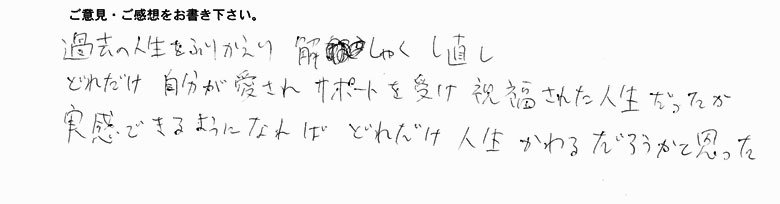 ご意見・ご感想をお書き下さい。
過去の人生をふりかえり 解しゃくし直し
どれだけ 自分が愛され サポートを受け 祝福された人生だったか
実感できるようになれば どれだけ 人生 かわるだろうかと思った